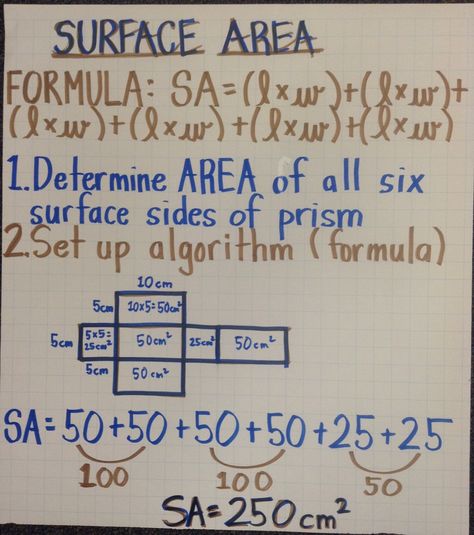 SURFACE AREA
FORMULA: SA=(l×w)+(l×w)+
(l×w)+(l×w)+(l×w)+(l×w)
1.Determine AREA of all six
surface sides of prism
2.Set up algorithm (formula)
10cm
5cm 10×5=50cm²
5cm 5×5=25cm² 50cm² 25cm² 50cm²
5cm 50cm²
SA=50+50+50+50+25+25
100 100 50
SA=250cm²